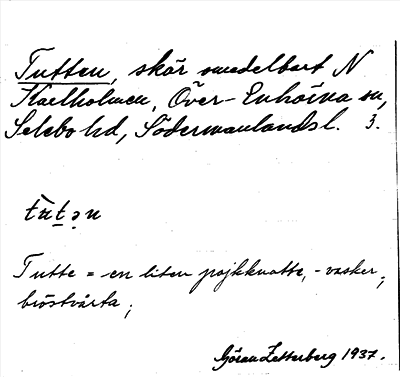 Tutten, skär omedelbart N
Kaelholmen, Över-Enhörna sn,
Selebo hd, Södermanlands l. 3.
tùt̠ə̣n
Tutte = en liten pojkknatte, - vacker,
bröstvårta;
Göran Zetterberg 1937.